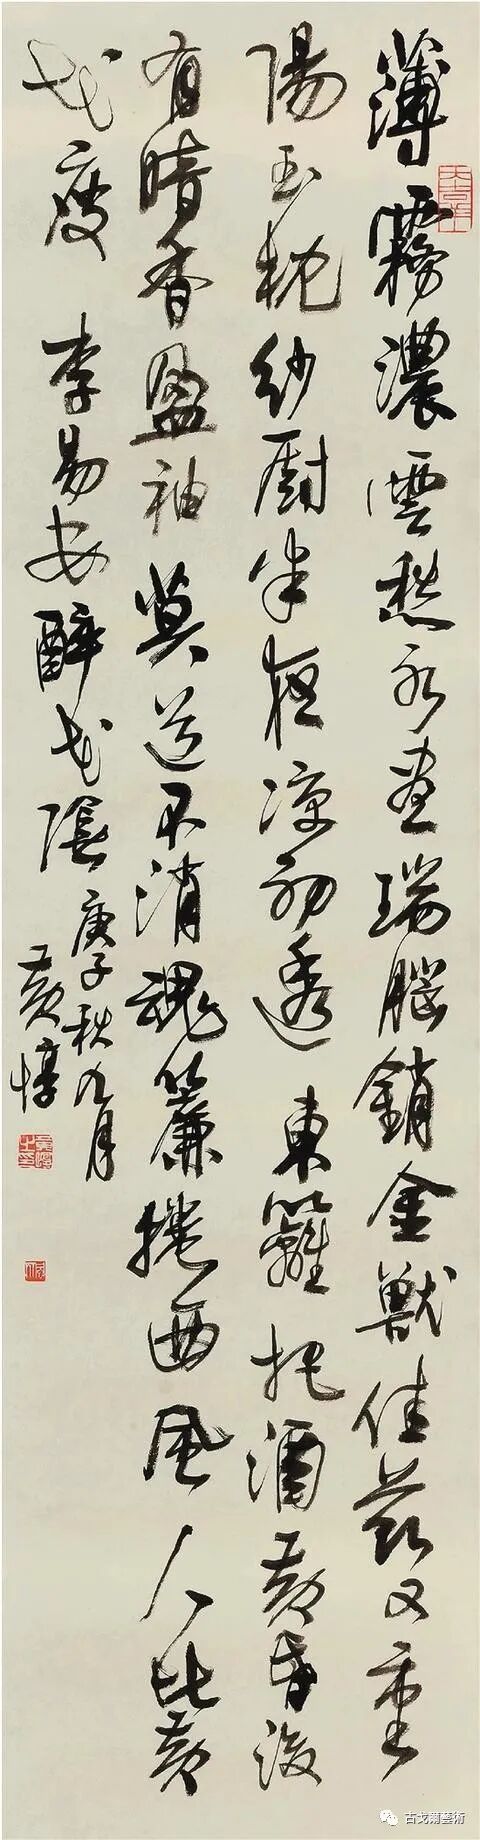 薄霧濃雲愁永晝瑞腦銷金獸佳節又重
陽玉枕紗厨半夜凉初透東籬把酒黃昏後
有暗香盈袖莫道不消魂簾捲西風人比黃
花瘦 李易安醉花陰 庚子秋九月
黃惇
古戈爾藝術